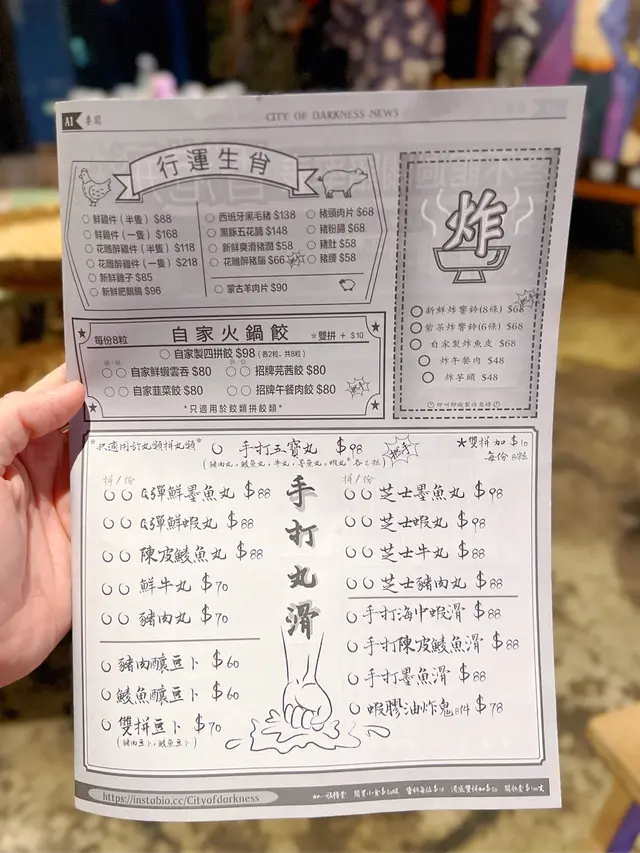 A1 要聞
CITY OF DARKNESS NEWS
行運生肖
鮮雞件(半隻) $88
鮮雞件(一隻) $168
花雕醉雞件(半隻) $118
花雕醉雞件(一隻) $218
新鮮雞子 $85
新鮮肥鵝腸 $96
西班牙黑毛豬 $138
黑豚五花腩 $148
新鮮爽滑豬潤 $58
花雕醉豬腦 $66
蒙古羊肉片 $90
豬頸肉片 $68
豬粉腸 $68
豬肚 $58
豬腰 $58
炸
新鮮炸響鈴(8條) $68
紫菜炸響鈴(6條) $68
自家製炸魚皮 $68
炸午餐肉 $48
炸芋頭 $48
每份8粒
自家火鍋餃
*雙拼 + $10
自家製四拼餃 $98 (各2粒, 共8粒)
自家鮮蝦雲吞 $80
招牌芫茜餃 $80
自家韮菜餃 $80
招牌午餐肉餃 $80
*只適用於餃類拼餃類*
*只適用於丸類拼丸類*
手打五寶丸 $98
(豬肉丸,鯪魚丸,牛丸,墨魚丸,蝦丸*各2粒)
★雙拼加$10
每份8粒
手打丸滑
拼/份
QQ彈鮮墨魚丸 $88
QQ彈鮮蝦丸 $88
陳皮鯪魚丸 $88
鮮牛丸 $70
豬肉丸 $70
豬肉釀豆卜 $60
鯪魚釀豆卜 $60
雙拼豆卜 $70
(豬肉豆卜,鯪魚豆卜)
拼/份
芝士墨魚丸 $98
芝士蝦丸 $98
芝士牛丸 $88
芝士豬肉丸 $88
手打海中蝦滑 $88
手打陳皮鯪魚滑 $88
手打墨魚滑 $88
蝦膠油炸鬼8件 $78
https://instabio.cc/Cityofdarkness